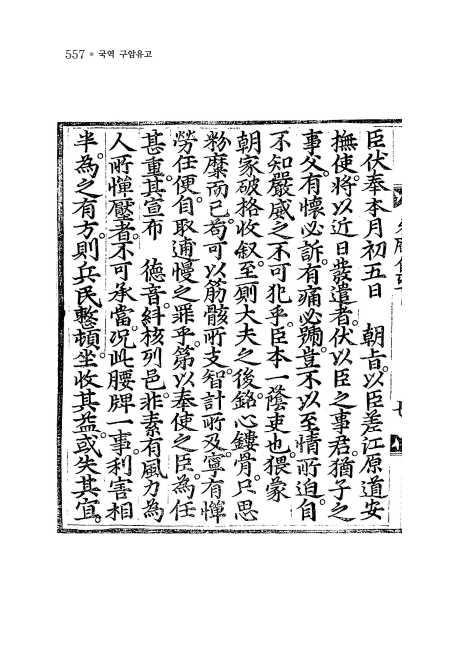 557 국역 구암유고
臣伏奉本月初五日 朝旨。以臣差江原道安
撫使。將以近日發遣者。伏以臣之事君。猶子之
事父。有懷必訴。有痛必號。豈不以至情所迫。自
不知嚴威之不可犯乎。臣本一蔭吏也。猥蒙
朝家破格收叙。至廁大夫之後。銘心鏤骨。只思
粉糜而已。苟可以筋骸所支。智計所及。寧有憚
勞任便。自取逋慢之罪乎。第以奉使之臣。為任
甚重。其宣布 德音。糾核列邑。非素有風力為
人所憚壓者。不可承當。況此腰牌一事。利害相
半。為之有方。則兵民慗頓。坐收其益。或失其宜。